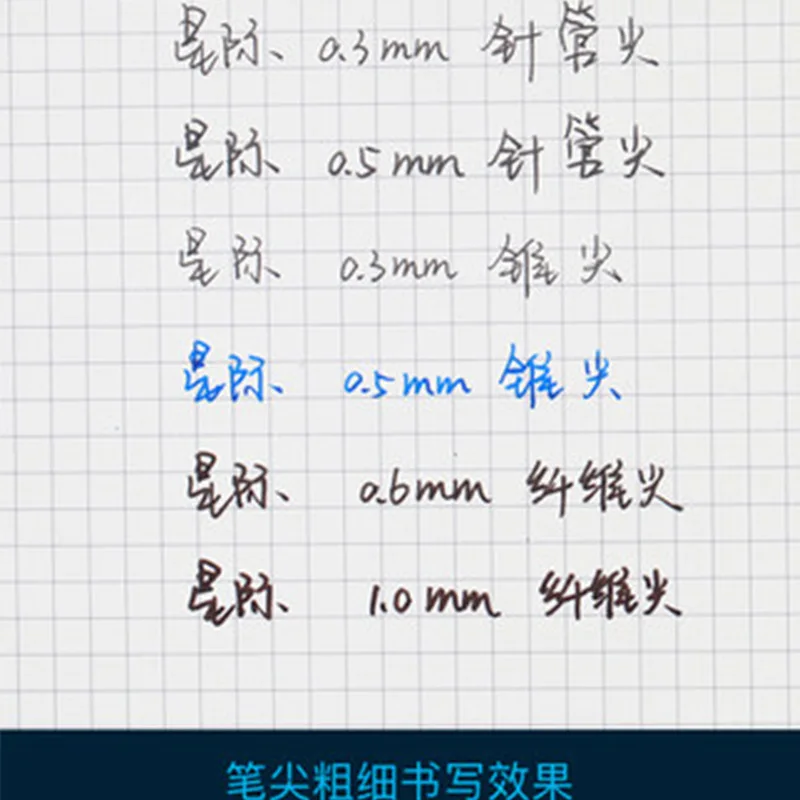 星际、 0.3mm 针管尖
星际、 0.5mm 针管尖
星际、 0.3mm 锥尖
星际、 0.5mm 锥尖
星际、 0.6mm 纤维尖
星际、 1.0mm 纤维尖
笔尖粗细书写效果